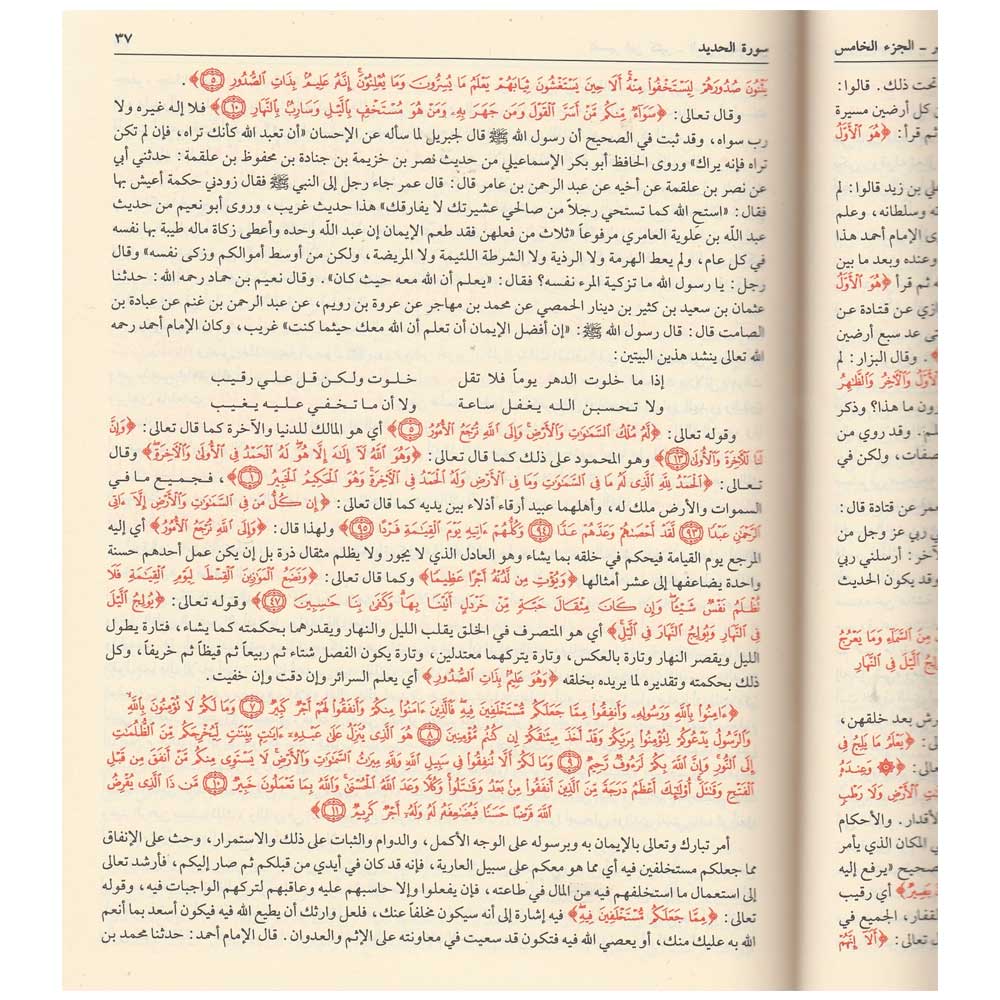 سورة الحديد
٣٧
يثنون صدورهم ليستخفوا منه ألا حين يستغشون ثيابهم يعلم ما يسرون وما يعلنون إنه عليم بذات الصدور ٥﴾.
وقال تعالى: ﴿سواء منكم من أسر القول ومن جهر به، ومن هو مستخف بالليل وسارب بالنهار ١٠﴾ فلا إله غيره ولا
رب سواه، وقد ثبت في الصحيح أن رسول الله ﷺ قال لجبريل لما سأله عن الإحسان «أن تعبد الله كأنك تراه، فإن لم تكن
تراه فإنه يراك» وروى الحافظ أبو بكر الإسماعيلي من حديث نصر بن خزيمة بن جنادة بن محفوظ بن علقمة: حدثني أبي
عن نصر بن علقمة عن أخيه عن عبد الرحمن بن عامر قال: قال عمر جاء رجل إلى النبي ﷺ فقال زودني حكمة أعيش بها
فقال: «استح الله كما تستحي رجلاً من صالحي عشيرتك لا يفارقك» هذا حديث غريب، وروى أبو نعيم من حديث
عبد الله بن علوية العامري مرفوعاً «ثلاث من فعلهن فقد طعم الإيمان إن عبد الله وحده وأعطى زكاة ماله طيبة بها نفسه
في كل عام، ولم يعط الهرمة ولا الرذية ولا الشرطة اللئيمة ولا المريضة، ولكن من أوسط أموالكم وزكى نفسه» وقال
رجل: يا رسول الله ما تزكية المرء نفسه؟ فقال: «يعلم أن الله معه حيث كان». وقال نعيم بن حماد رحمه الله: حدثنا
عثمان بن سعيد بن كثير بن دينار الحمصي عن محمد بن مهاجر عن عروة بن رويم، عن عبد الرحمن بن غنم عن عبادة بن
الصامت قال: قال رسول الله ﷺ: «إن أفضل الإيمان أن تعلم أن الله معك حيثما كنت» غريب، وكان الإمام أحمد رحمه
الله تعالى ينشد هذين البيتين:
إذا ما خلوت الدهر يوماً فلا تقل خلوت ولكن قل علي رقيب
ولا تحسبن الله يغفل ساعة ولا أن ما تخفي عليه يغيب
وقوله تعالى: ﴿له ملك السماوات والأرض وإلى الله ترجع الأمور ٥﴾ أي هو المالك للدنيا والآخرة كما قال تعالى: ﴿وإن
لنا للآخرة والأولى ١٣﴾ وهو المحمود على ذلك كما قال تعالى: ﴿وهو الله لا إله إلا هو له الحمد في الأولى والآخرة﴾ وقال
تعالى: ﴿الحمد لله الذي له ما في السماوات وما في الأرض وله الحمد في الآخرة وهو الحكيم الخبير ١﴾، فجميع ما في
السموات والأرض ملك له، وأهلهما عبيد أرقاء أذلاء بين يديه كما قال تعالى: ﴿إن كل من في السماوات والأرض إلا ءاتي
الرحمن عبدا ٩٣ لقد أحصاهم وعدهم عدا ٩٤ وكلهم ءاتيه يوم القيامة فردا ٩٥﴾ ولهذا قال: ﴿وإلى الله ترجع الأمور﴾ أي إليه
المرجع يوم القيامة فيحكم في خلقه بما يشاء وهو العادل الذي لا يجور ولا يظلم مثقال ذرة بل إن يكن عمل أحدهم حسنة
واحدة يضاعفها إلى عشر أمثالها ﴿ويؤت من لدنه أجرا عظيما﴾ وكما قال تعالى: ﴿ونضع الموازين القسط ليوم القيامة فلا
تظلم نفس شيئا وإن كان مثقال حبة من خردل أتينا بها وكفى بنا حاسبين ٤٧﴾ وقوله تعالى: ﴿يولج الليل
في النهار ويولج النهار في الليل﴾ أي هو المتصرف في الخلق يقلب الليل والنهار ويقدرهما بحكمته كما يشاء، فتارة يطول
الليل ويقصر النهار وتارة بالعكس، وتارة يتركهما معتدلين، وتارة يكون الفصل شتاء ثم ربيعاً ثم قيظاً ثم خريفاً، وكل
ذلك بحكمته وتقديره لما يريده بخلقه ﴿وهو عليم بذات الصدور﴾ أي يعلم السرائر وإن دقت وإن خفيت.
﴿ءامنوا بالله ورسوله، وأنفقوا مما جعلكم مستخلفين فيه فالذين ءامنوا منكم وأنفقوا لهم أجر كبير ٧ وما لكم لا تؤمنون بالله
والرسول يدعوكم لتؤمنوا بربكم وقد أخذ ميثاقكم إن كنتم مؤمنين ٨ هو الذي ينزل على عبده ءايات بينات ليخرجكم من الظلمات
إلى النور وإن الله بكم لرءوف رحيم ٩ وما لكم ألا تنفقوا في سبيل الله ولله ميراث السماوات والأرض لا يستوي منكم من أنفق من قبل
الفتح وقاتل أولئك أعظم درجة من الذين أنفقوا من بعد وقاتلوا وكلا وعد الله الحسنى والله بما تعملون خبير ١٠ من ذا الذي يقرض
الله قرضا حسنا فيضاعفه له وله، أجر كريم ١١﴾
أمر تبارك وتعالى بالإيمان به وبرسوله على الوجه الأكمل، والدوام والثبات على ذلك والاستمرار، وحث على الإنفاق
مما جعلكم مستخلفين فيه أي مما هو معكم على سبيل العارية، فإنه قد كان في أيدي من قبلكم ثم صار إليكم، فأرشد تعالى
إلى استعمال ما استخلفهم فيه من المال في طاعته، فإن يفعلوا وإلا حاسبهم عليه وعاقبهم لتركهم الواجبات فيه، وقوله
تعالى: ﴿مما جعلكم مستخلفين فيه﴾ فيه إشارة إلى أنه سيكون مخلفاً عنك، فلعل وارثك أن يطيع الله فيه فيكون أسعد بما أنعم
الله به عليك منك، أو يعصي الله فيه فتكون قد سعيت في معاونته على الإثم والعدوان. قال الإمام أحمد: حدثنا محمد بن